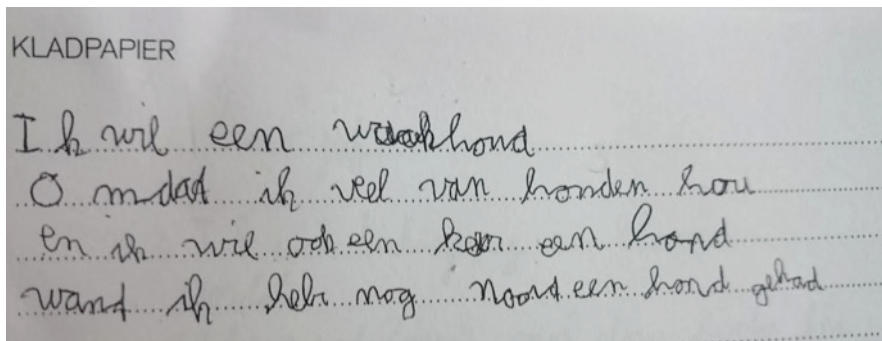 KLADPAPIER
Ik wil een waakhond
Omdat ik veel van honden hou
en ik wil ook een keer een hond
wand ik heb nog noord een hond gehad